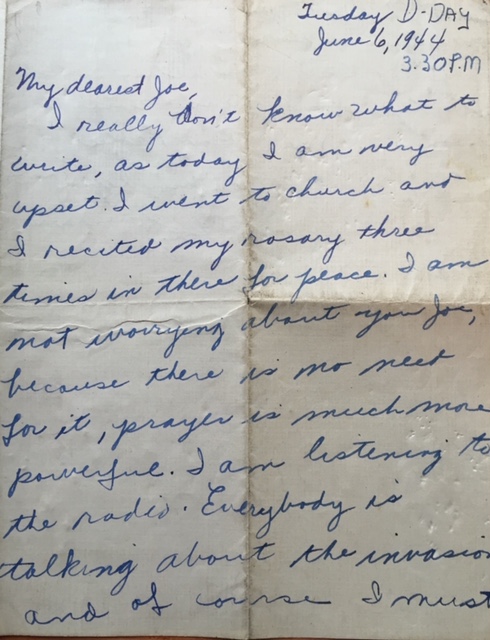 Tuesday D-DAY
June 6, 1944
3.30 P.M
My dearest Joe,
I really don't know what to
write, as today I am very
upset. I went to church and
I recited my rosary three
times in there for peace. I am
not worrying about you Joe,
because there is no need
for it, prayer is much more
powerful. I am listening to
the radio. Everybody is
talking about the invasion
and of course I must